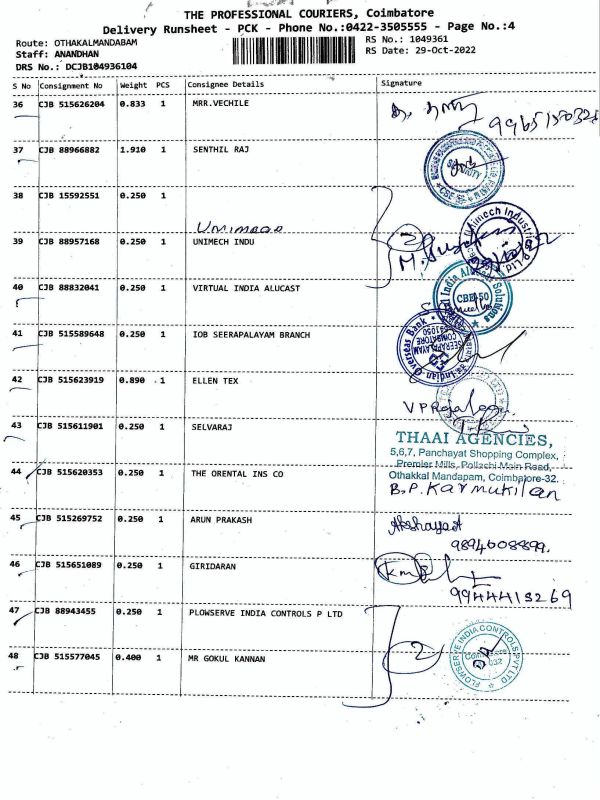 THE PROFESSIONAL COURIERS, Coimbatore
Delivery Runsheet - PCK - Phone No.:0422-3505555 - Page No.:4
Route: OTHAKALMANDABAM
RS No.: 1049361
Staff: ANANDHAN
RS Date: 29-Oct-2022
DRS No.: DCJB104936104
S No Consignment No Weight PCS Consignee Details Signature
36 CJB 515626204 0.833 1 MRR.VECHILE
37 CJB 88966882 1.910 1 SENTHIL RAJ
38 CJB 15592551 0.250 1
Unimech
39 CJB 88957168 0.250 1 UNIMECH INDU
2
Unimech Industries P Ltd
40 CJB 88832041 0.250 1 VIRTUAL INDIA ALUCAST
CBE-50
41 CJB 515589648 0.250 1 IOB SEERAPALAYAM BRANCH
Indian Overseas Bank
SEERAPALAYAM
COIMBATORE
42 CJB 515623919 0.890 1 ELLEN TEX
43 CJB 515611901 0.250 1 SELVARAJ
THAAI AGENCIES,
5,6,7, Panchayat Shopping Complex,
Premier Mills, Pollachi Main Road,
Othakkal Mandapam, Coimbatore-32.
44 CJB 515620353 0.250 1 THE ORENTAL INS CO
B.P. Karmukilan
45 CJB 515269752 0.250 1 ARUN PRAKASH
9894608899.
46 CJB 515651089 0.250 1 GIRIDARAN
9944413269
47 CJB 88943455 0.250 1 PLOWSERVE INDIA CONTROLS P LTD
2
FLOWSERVE INDIA CONTROLS PVT LTD
48 CJB 515577045 0.400 1 MR GOKUL KANNAN